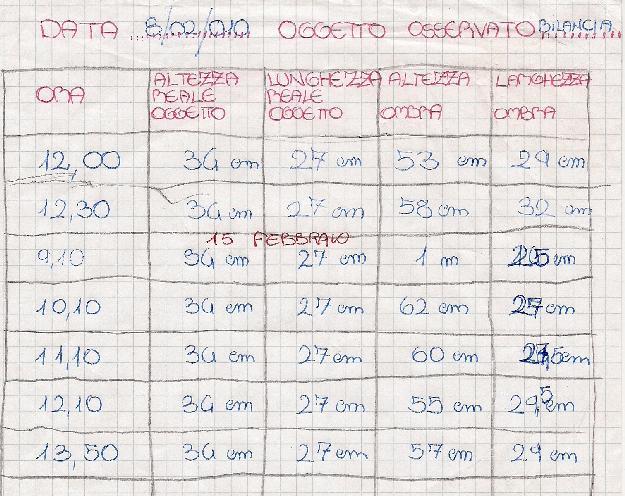 DATA 8/02/010 OGGETTO OSSERVATO BILANCIA
ORA ALTEZZA REALE OGGETTO LUNGHEZZA REALE OGGETTO ALTEZZA OMBRA LARGHEZZA OMBRA
12,00 34 cm 27 cm 53 cm 29 cm
12,30 34 cm 27 cm 58 cm 32 cm
15 FEBBRAIO
9,10 34 cm 27 cm 1 m cm
10,10 34 cm 27 cm 62 cm 27 cm
11,10 34 cm 27 cm 60 cm cm
12,10 34 cm 27 cm 55 cm 29,5 cm
13,50 34 cm 27 cm 57 cm 29 cm